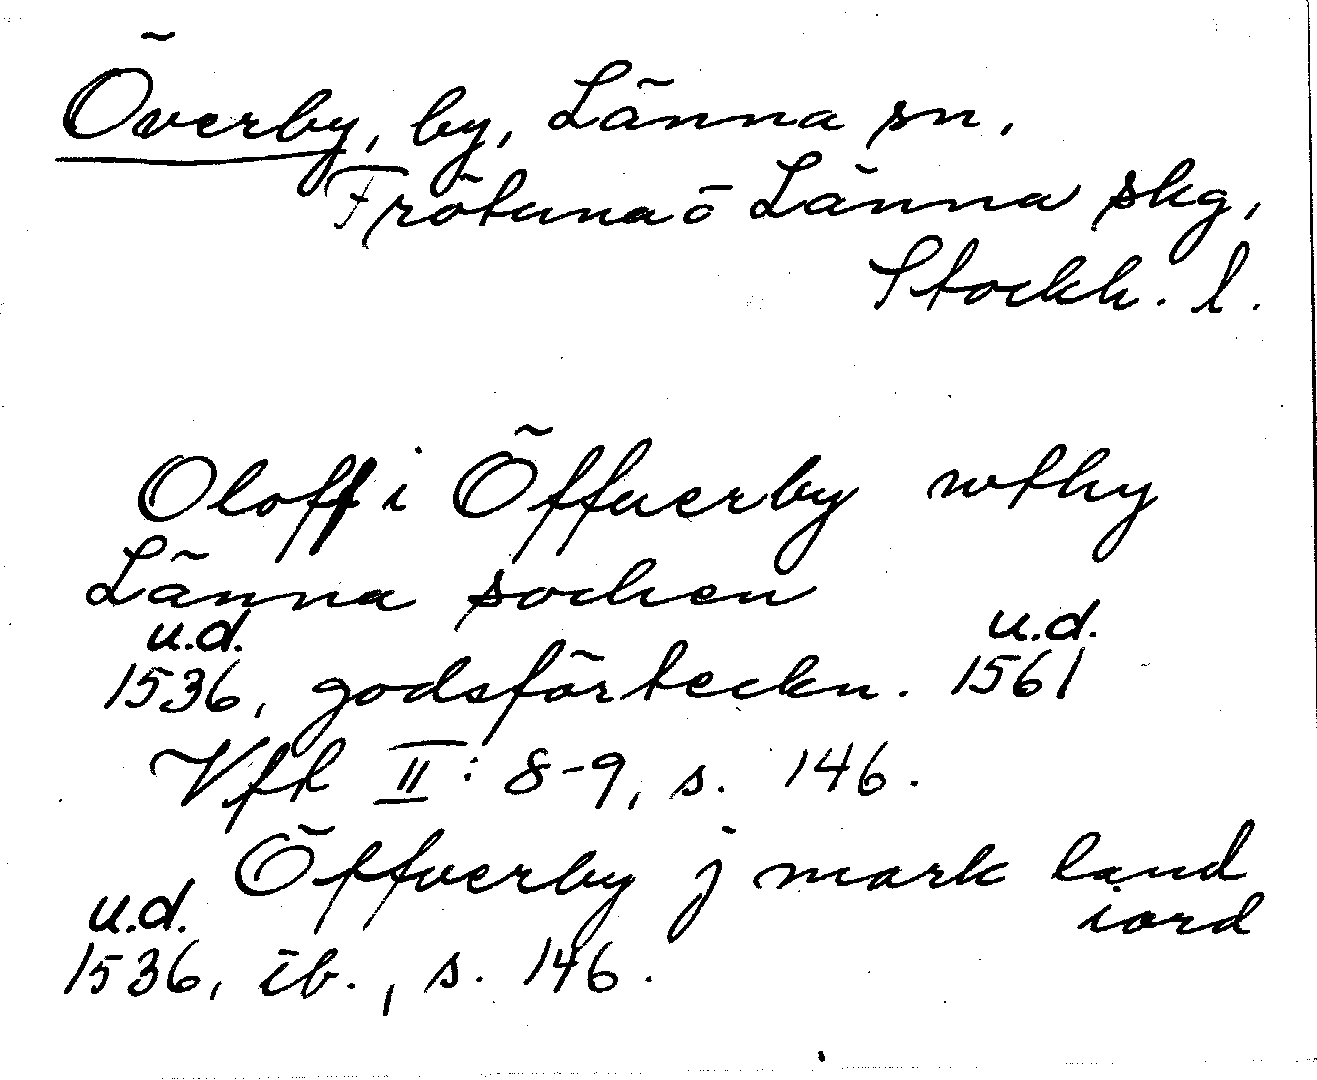 Överby, by, Länna sn,
Frötuna ō Länna skg,
Stockh. l.
Oloff i Öffuerby wthy
Länna sochen
u.d. u.d.
1536, godsförteckn. 1561
Vfk II: 8-9, s. 146.
Öffuerby j mark land
iord
u.d.
1536, ib., s. 146.